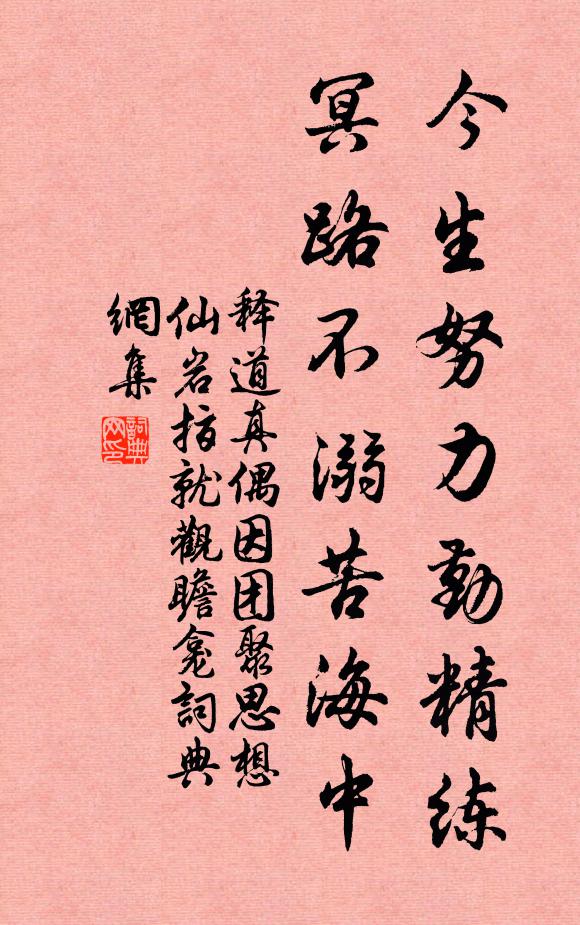 今生努力勤精练
冥路不溺苦海中
释道真偶因团聚思想
仙岩指就觀瞻龛詞典
網集
詞典
网印